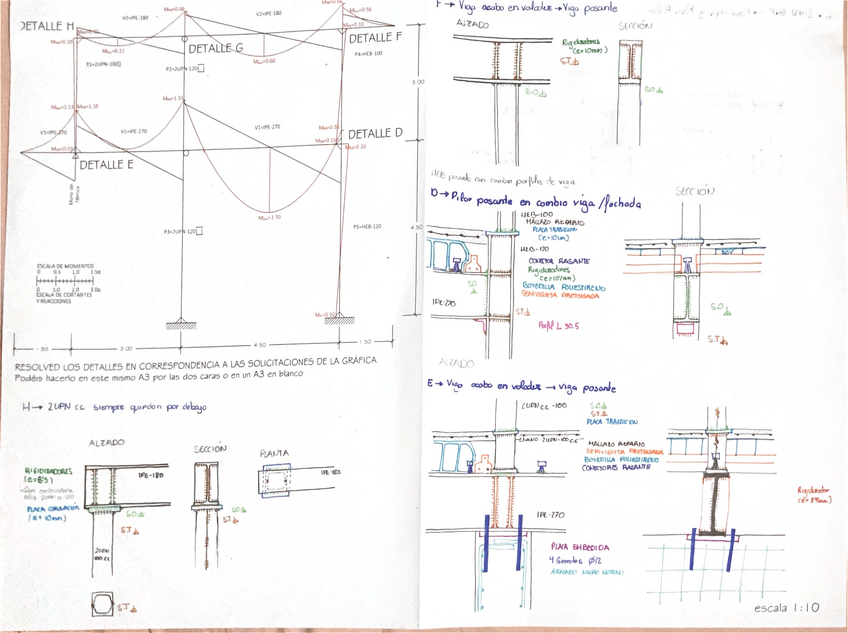 DETALLE H
V2=IPE-180
V2=IPE-180
DETALLE G
DETALLE F
P1=2UPN-100
P2=2UPN-120
P4=HEB-100
3.00
V1=IPE-270
V1=IPE-270
V1=IPE-270
DETALLE D
DETALLE E
Muro de
fábrica
P3=2UPN-120
P5=HEB-120
4.50
ESCALA DE MOMENTOS
0 0.5 1.0 1.5
0 1.0 2.0 3.0
ESCALA DE CORTANTES
Y REACCIONES
1.50
3.00
4.50
1.50
RESOLVED LOS DETALLES EN CORRESPONDENCIA A LAS SOLICITACIONES DE LA GRÁFICA
Podéis hacerlo en este mismo A3 por las dos caras o en un A3 en blanco
H → 2UPN cc siempre quedan por debajo
ALZADO
SECCIÓN
PLANTA
RIGIDIZADORES
IPE-180
IPE-180
PLACA CORONACIÓN
(e= 10mm)
S.O
S.T
S.O
S.T
2UPN
100 cc
S.T
F → Viga acabo en voladizo → Viga pasante
ALZADO
SECCIÓN
Rigidizadores
(e=10mm)
S.T
S.O
S.O
HEB pasante con cambio perfiles de viga
D → Pilar pasante en cambio viga / fachada
SECCIÓN
HEB-100
MALLAZO REPARTO
PLACA TRANSICIÓN
(e=10mm)
HEB-120
CONECTOR RASANTE
Rigidizadores
(e=10mm)
BOVEDILLA POLIESTIRENO
SEMIVIGUETA PRETENSADA
S.O
IPE-270
S.T
Perfil L 50.5
S.O
S.T
ALZADO
E → Viga acabo en voladizo → Viga pasante
2UPN cc -100
S.O
S.T
PLACA TRANSICIÓN
2UPN-100 cc
MALLAZO REPARTO
SEMIVIGUETA PRETENSADA
BOVEDILLA POLIESTIRENO
CONECTORES RASANTE
Rigidizador
IPE-270
PLACA EMBEBIDA
4 Garrotas Ø12
escala 1:10